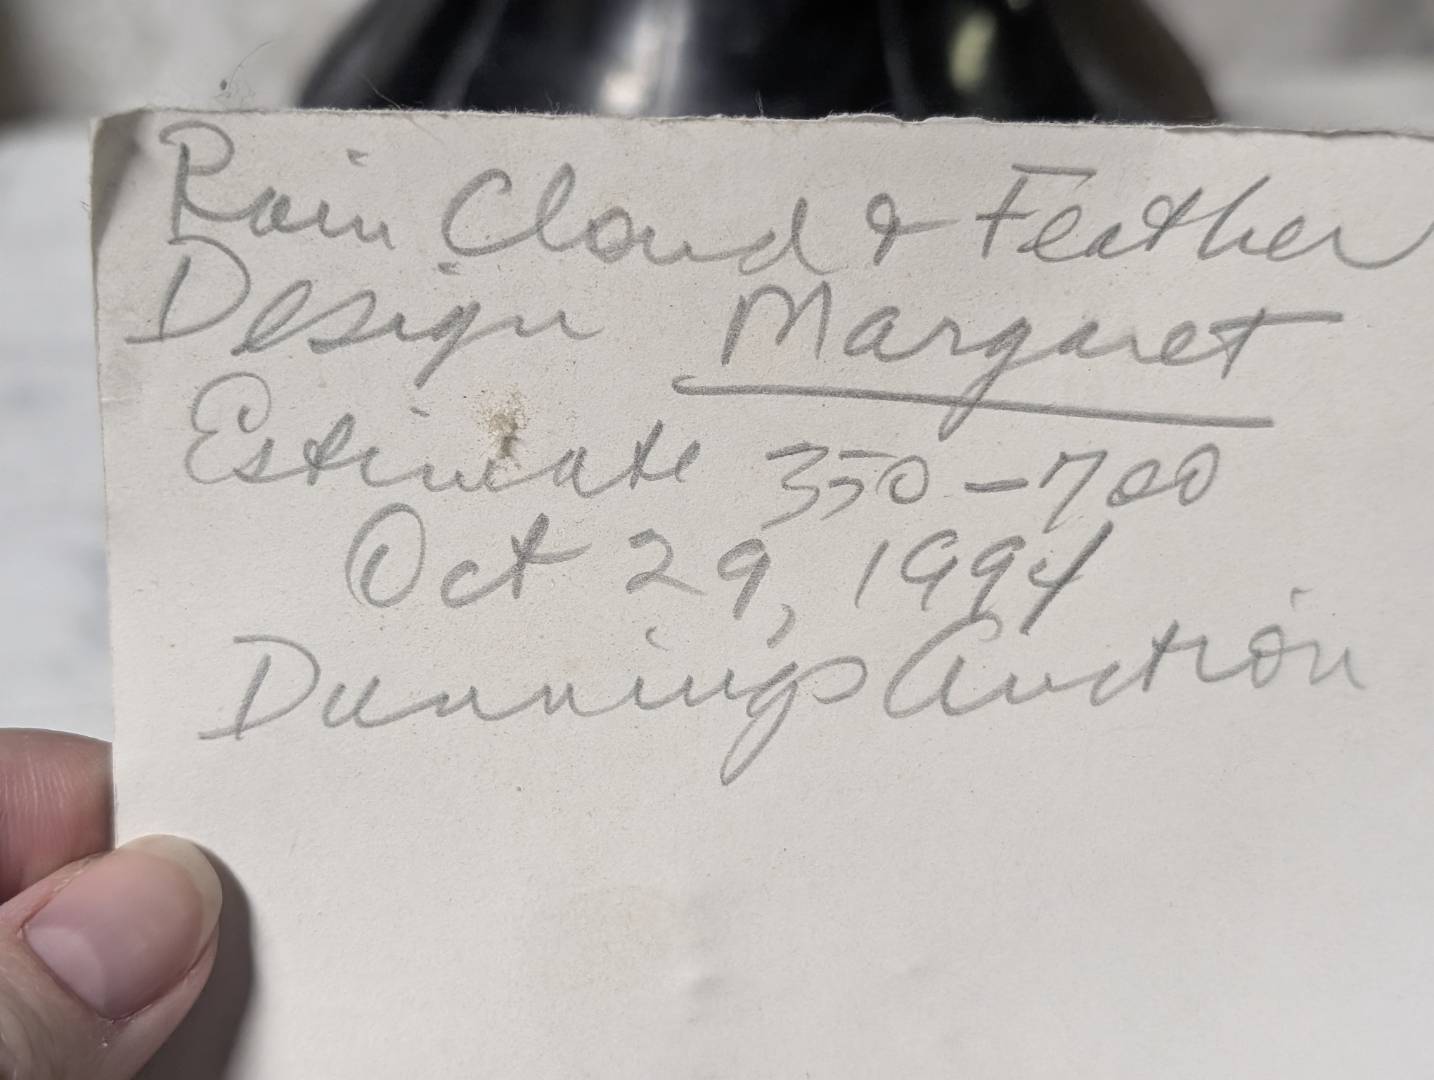 Rain Cloud & Feather
Design Margaret
Estimate 350-700
Oct 29, 1994
Dunnings Auction